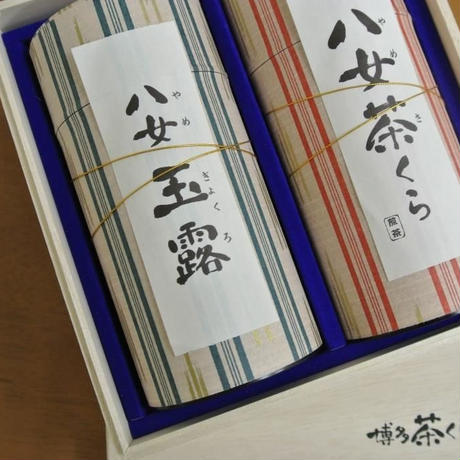 八女玉露
やめ ぎょくろ
八女茶くら
やめ さ
煎茶
博多茶く